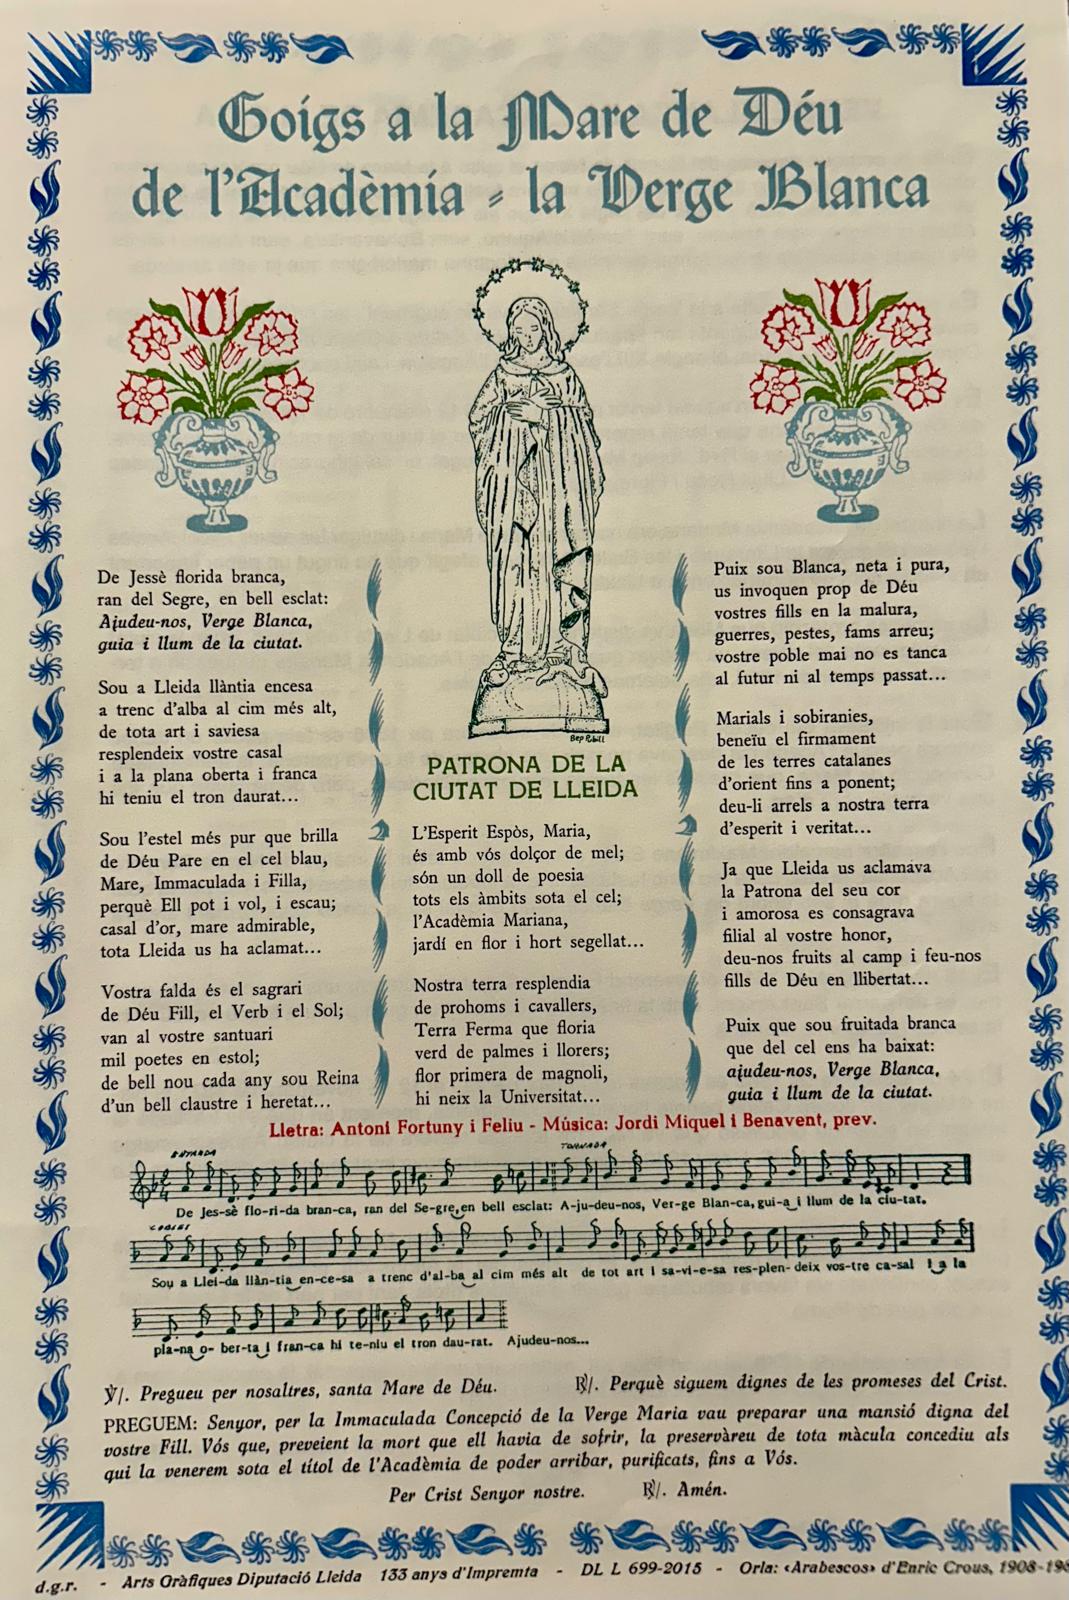 Goigs a la Mare de Déu
de l'Acadèmia - la Verge Blanca
De Jessè florida branca,
ran del Segre, en bell esclat:
Ajudeu-nos, Verge Blanca,
guia i llum de la ciutat.
Sou a Lleida llàntia encesa
a trenc d'alba al cim més alt,
de tota art i saviesa
resplendeix vostre casal
i a la plana oberta i franca
hi teniu el tron daurat...
Sou l'estel més pur que brilla
de Déu Pare en el cel blau,
Mare, Immaculada i Filla,
perquè Ell pot i vol, i escau;
casal d'or, mare admirable,
tota Lleida us ha aclamat...
Vostra falda és el sagrari
de Déu Fill, el Verb i el Sol;
van al vostre santuari
mil poetes en estol;
de bell nou cada any sou Reina
d'un bell claustre i heretat...
Bep Pibill
PATRONA DE LA
CIUTAT DE LLEIDA
L'Esperit Espòs, Maria,
és amb vós dolçor de mel;
són un doll de poesia
tots els àmbits sota el cel;
l'Acadèmia Mariana,
jardí en flor i hort segellat...
Nostra terra resplendia
de prohoms i cavallers,
Terra Ferma que floria
verd de palmes i llorers;
flor primera de magnoli,
hi neix la Universitat...
Puix sou Blanca, neta i pura,
us invoquen prop de Déu
vostres fills en la malura,
guerres, pestes, fams arreu;
vostre poble mai no es tanca
al futur ni al temps passat...
Marials i sobiranies,
beneïu el firmament
de les terres catalanes
d'orient fins a ponent;
deu-li arrels a nostra terra
d'esperit i veritat...
Ja que Lleida us aclamava
la Patrona del seu cor
i amorosa es consagrava
filial al vostre honor,
deu-nos fruits al camp i feu-nos
fills de Déu en llibertat...
Puix que sou fruitada branca
que del cel ens ha baixat:
ajudeu-nos, Verge Blanca,
guia i llum de la ciutat.
Lletra: Antoni Fortuny i Feliu - Música: Jordi Miquel i Benavent, prev.
ENTRADA TORNADA
De Jes-sè flo-ri-da bran-ca, ran del Se-gre, en bell esclat: A-ju-deu-nos, Ver-ge Blan-ca, gui-a i llum de la ciu-tat.
COBLES
Sou a Llei-da llàn-tia en-ce-sa a trenc d'al-ba al cim més alt de tot art i sa-vi-e-sa res-plen-deix vos-tre ca-sal i a la
pla-na o-ber-ta i fran-ca hi te-niu el tron dau-rat. Ajudeu-nos...
℣/. Pregueu per nosaltres, santa Mare de Déu. ℟/. Perquè siguem dignes de les promeses del Crist.
PREGUEM: Senyor, per la Immaculada Concepció de la Verge Maria vau preparar una mansió digna del
vostre Fill. Vós que, preveient la mort que ell havia de sofrir, la preservàreu de tota màcula concediu als
qui la venerem sota el títol de l'Acadèmia de poder arribar, purificats, fins a Vós.
Per Crist Senyor nostre. ℟/. Amén.
d.g.r. - Arts Gràfiques Diputació Lleida 133 anys d'Impremta - DL L 699-2015 - Orla: «Arabescos» d'Enric Crous, 1908-